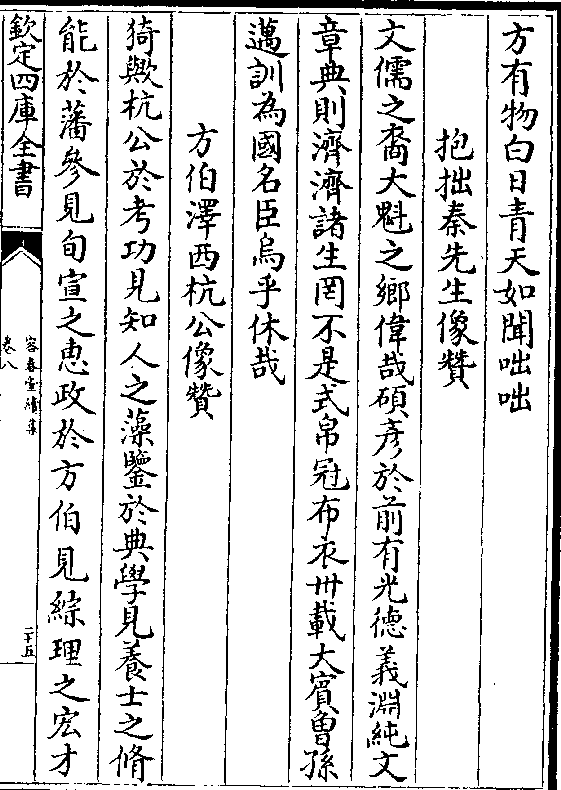 方有物白日青天如聞咄咄
抱拙秦先生像贊
文儒之裔大魁之鄉偉哉碩彥於前有光德義淵純文
章典則濟濟諸生罔不是式帛冠布衣卅載大賓曾孫
邁訓為國名臣烏乎休哉
方伯澤西杭公像贊
猗歟杭公於考功見知人之藻鑒於典學見養士之脩
能於藩參見旬宣之惠政於方伯見綜理之宏才
欽定四庫全書
容春堂續集
卷八
二十五